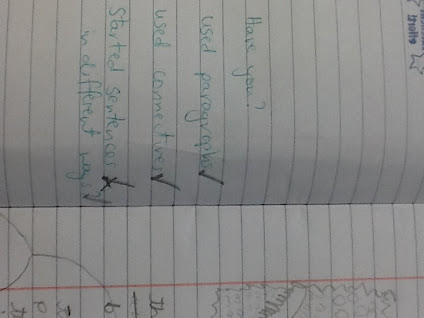 Have you?
used paragraphs ✓
used connectives ✓
Started sentences
in different ways